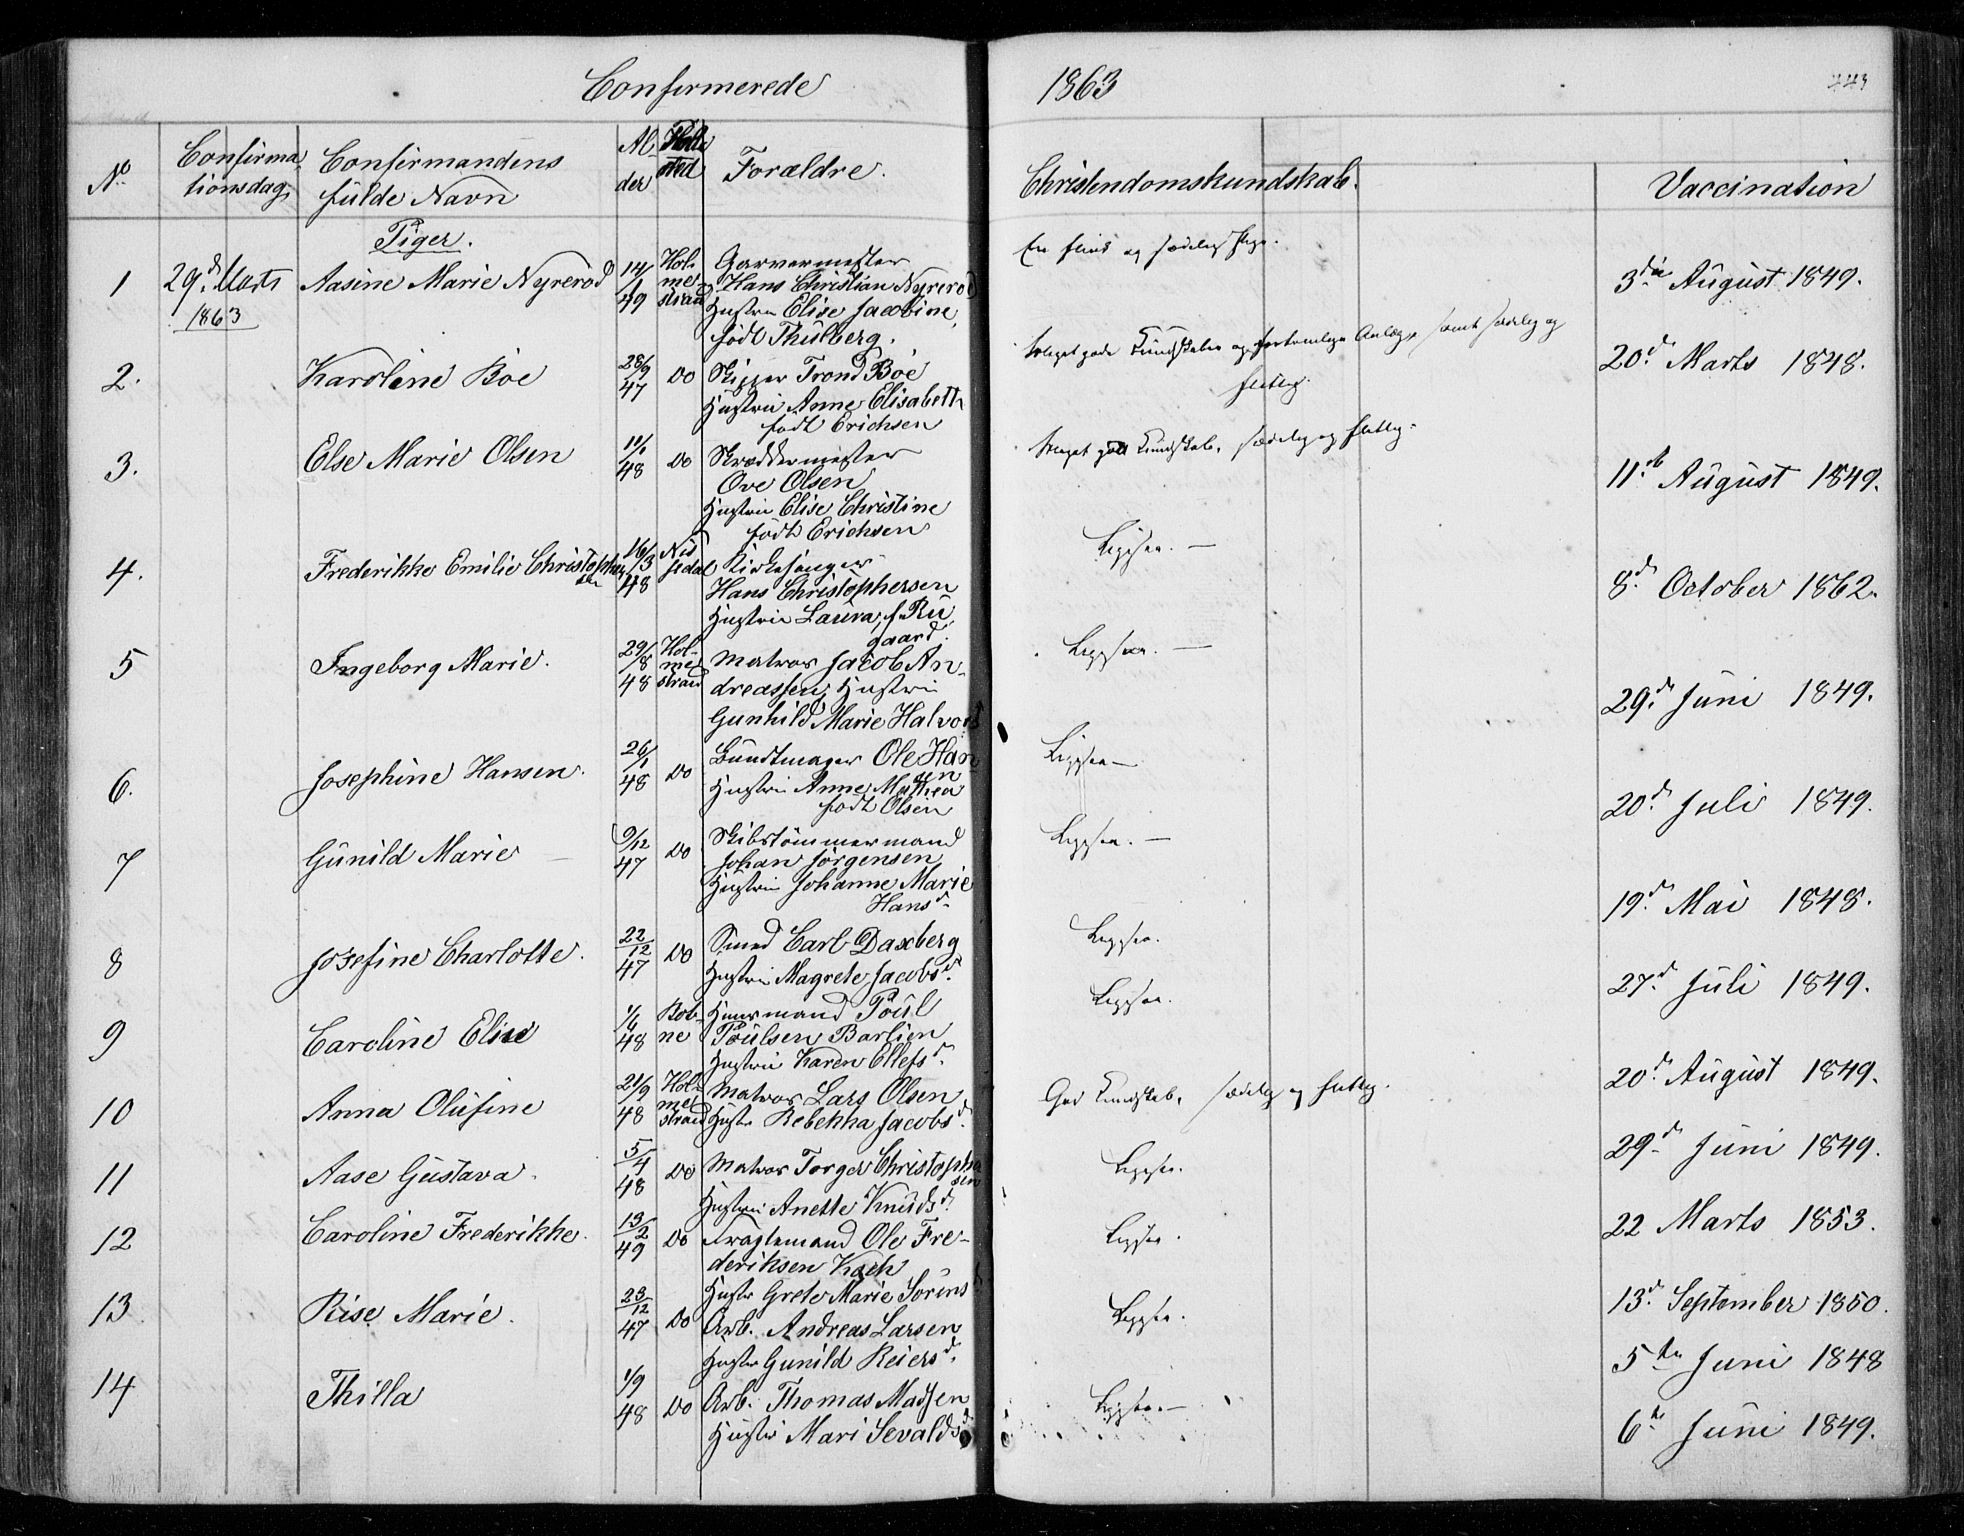 Confirmerede 1863
443
No Confirmationsdag Confirmandens fulde Navn Alder sted Forældre. Christendomskundskab. Vaccination
Piger.
1 29d. Marts 1863 Aasine Marie Nyrerød 14/1 49 Holmestrand Garvermester
Hans Christian Nyrerød
Hustru Elise Jacobine,
født Thulberg.
En flink og sædelig Pige.
3die August 1849.
2. Karoline Boe 28/9 47 Do Skipper Trond Boe
Hustru Anne Elisabeth
født Erichsen
Meget gode Kundskaber og fortrinlige Anlæg, samt sædelig og
flittig.
20d. Marts 1848.
3. Else Marie Olsen 11/1 48 Do Skræddermester
Ove Olsen
Hustru Elise Christine
født Erichsen
Meget god Kundskab, sædelig og flittig.
11te August 1849.
4. Frederikke Emilie Christophersen 16/3 48 Nissedal Kirkesanger
Hans Christophersen
Hustru Laura, f. Rugaard.
Ligesaa. —
8d. October 1862.
5 Ingeborg Marie. 29/8 48 Holmestrand Matros Jacob Andreassen, Hustru
Gunhild Marie Halvorsd
Ligesaa. —
29d. Juni 1849.
6. Josephine Hansen. 26/1 48 Do Bundtmager Ole Hansen
Hustru Anne Mathea
født Olsen
Ligesaa —
20d. Juli 1849.
7 Gunild Marie 9/12 47 Do Skibstömmermand
Johan Jørgensen
Hustru Johanne Marie
Hansd.
Ligesaa. —
19d. Mai 1848.
8 Josefine Charlotte. 22/12 47 Do Smed Carl Daxberg
Hustru Magrete Jacobsd.
Ligesaa.
27d. Juli 1849.
9 Caroline Elise 1/6 48 Botne Huusmand Poul
Poulsen Barlien
Hustru Karen Ellefsd.
Ligesaa.
20d. August 1849.
10 Anna Olufine 21/9 48 Holmestrand Matros Lars Olsen
Hustr Rebekka Jacobsd.
God Kundskab, sædelig og flittig.
29d. Juni 1849.
11 Aase Gustava. 5/4 48 Do Matros Torger Christophersen
Hustru Anette Knudsd.
Ligesaa.
22 Marts 1853.
12 Caroline Frederikke. 13/2 49 Do Fragtemand Ole Frederiksen Koch
Hustr Grete Marie Sörensd
Ligesaa.
13d. September 1850.
13 Rise Marie. 23/12 47 Do Arb. Andreas Larsen
Hustr Gunild Reiersd.
Ligesaa.
5te Juni 1848
14 Thilla 1/9 48 Do Arb. Thomas Madsen
Hustr Mari Sevaldsd
Ligesaa. —
6te Juni 1849.